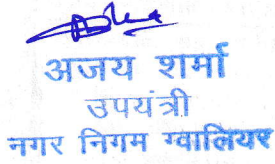 अजय शर्मा
उपयंत्री
नगर निगम ग्वालियर